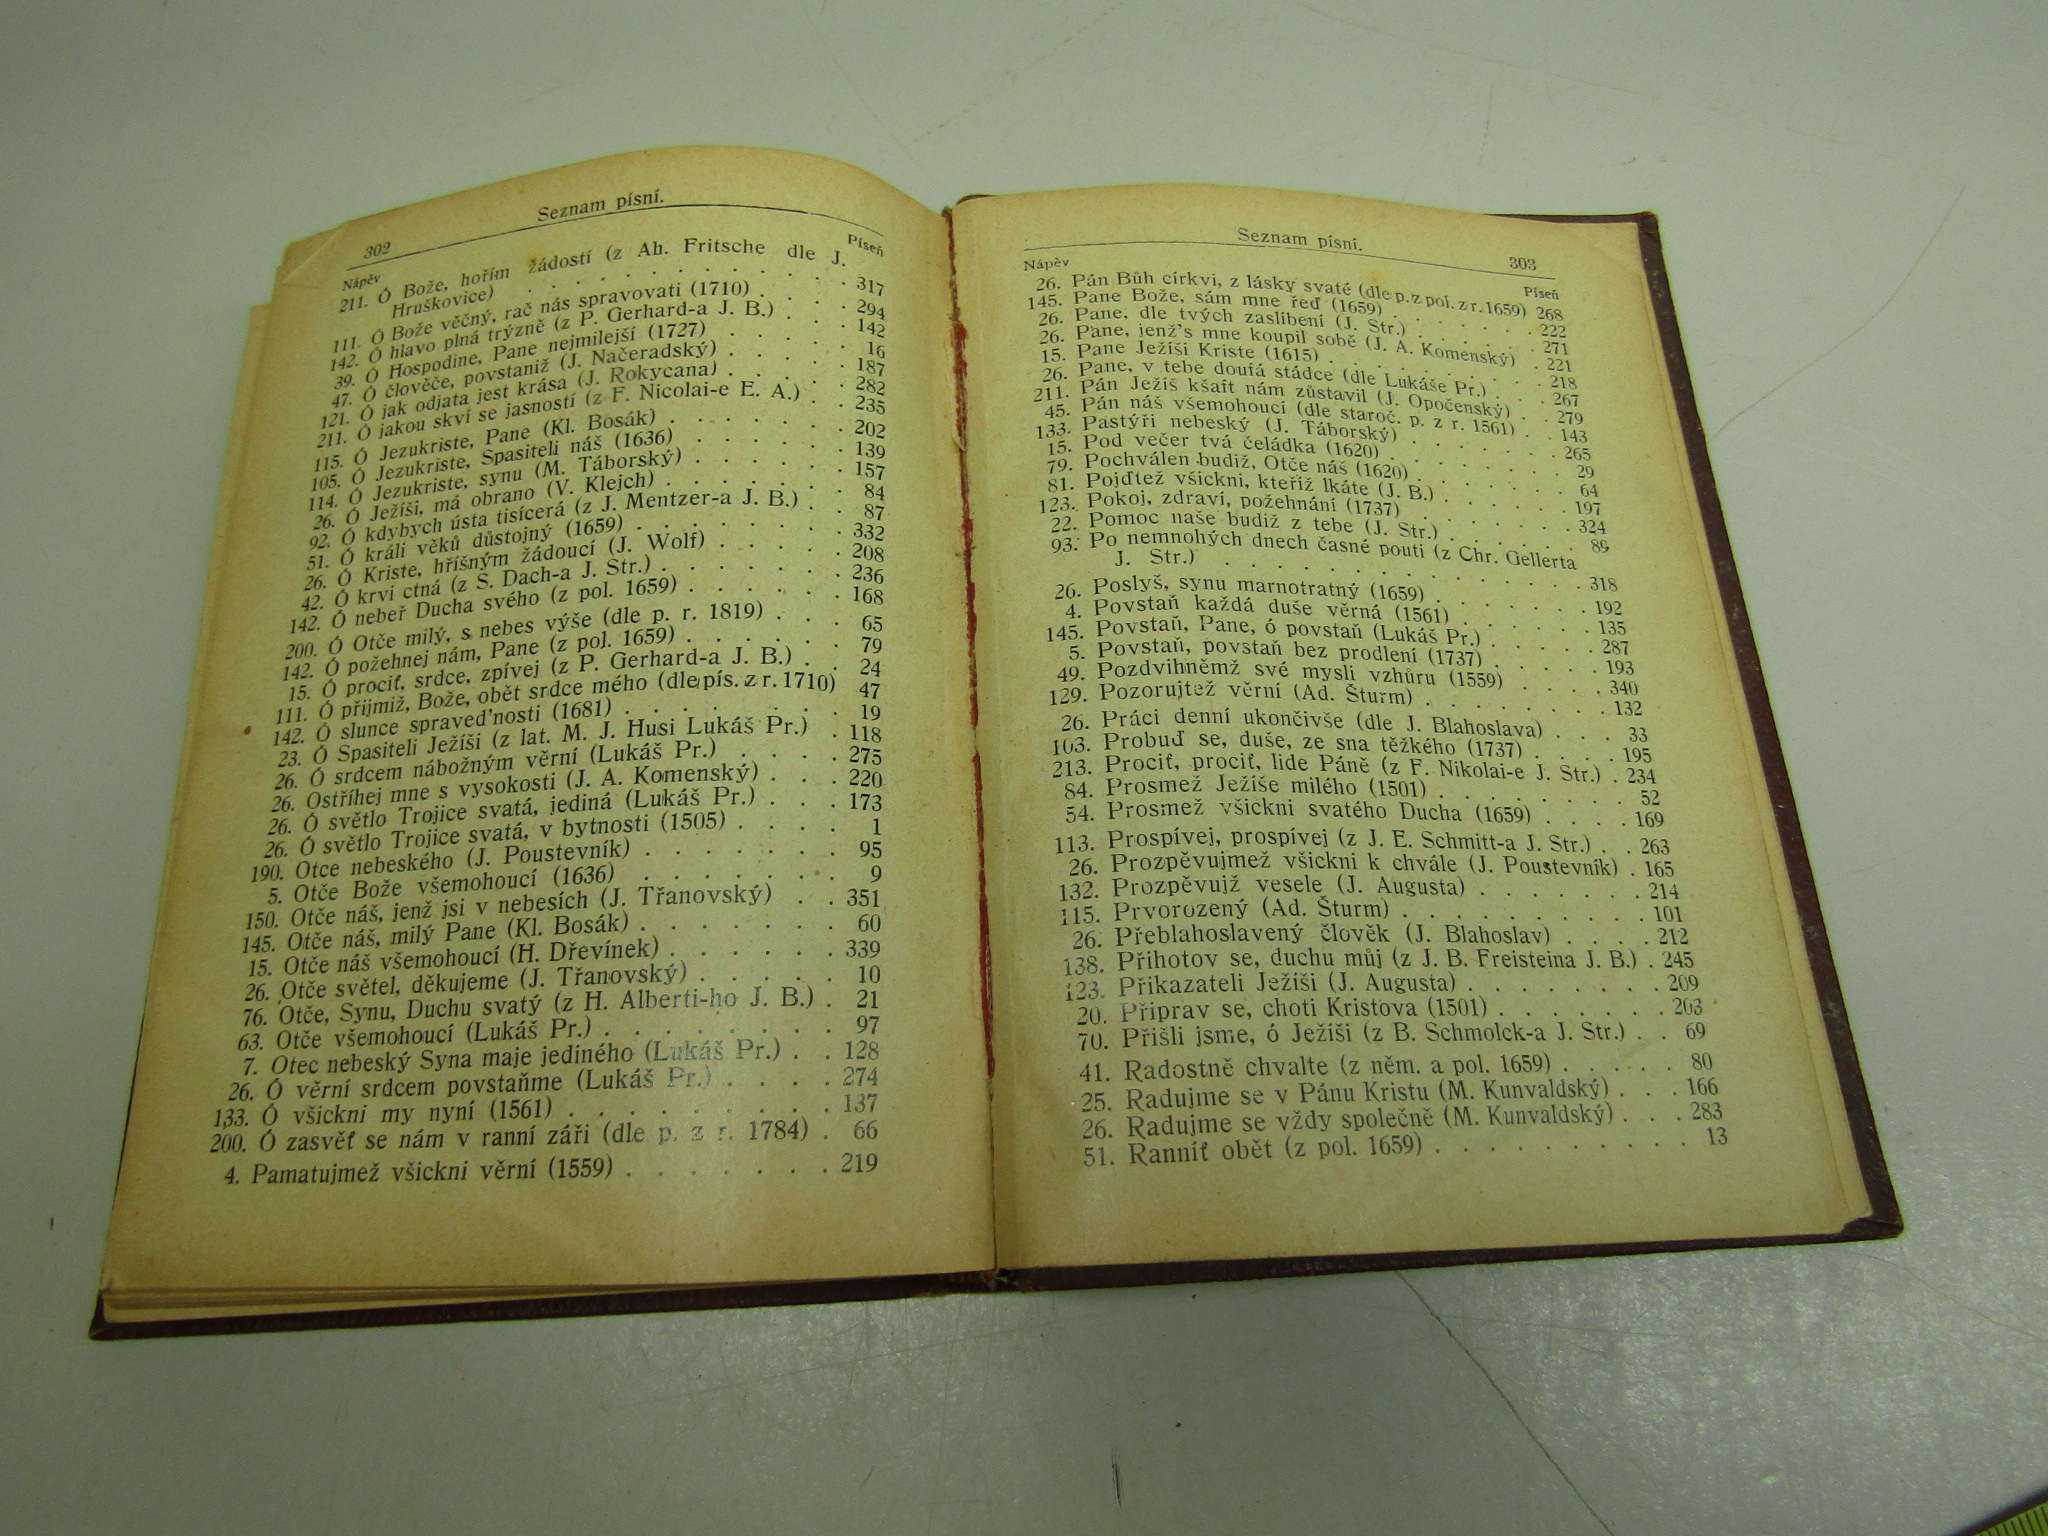 302
Seznam písní.
Nápěv
Píseň
211. Ó Bože, hořím žádostí (z Ah. Fritsche dle J.
Hruškovice) . . . . . . . . . . 317
111. Ó Bože věčný, rač nás spravovati (1710) . . . 294
142. Ó hlavo plná trýzně (z P. Gerhard-a J. B.) . . 142
39. Ó Hospodine, Pane nejmilejší (1727) . . . . 16
47. Ó člověče, povstaniž (J. Načeradský) . . . . 187
121. Ó jak odjata jest krása (J. Rokycana) . . . . 282
211. Ó jakou skví se jasností (z F. Nicolai-e E. A.) . . 235
115. Ó Jezukriste, Pane (Kl. Bosák) . . . . . . 202
105. Ó Jezukriste, Spasiteli náš (1636) . . . . . 139
114. Ó Jezukriste, synu (M. Táborský) . . . . . 157
26. Ó Ježíši, má obrano (V. Klejch) . . . . . . 84
92. Ó kdybych ústa tisícerá (z J. Mentzer-a J. B.) . . 87
51. Ó králi věků důstojný (1659) . . . . . . . 332
26. Ó Kriste, hříšným žádoucí (J. Wolf) . . . . . 208
42. Ó krvi ctná (z S. Dach-a J. Str.) . . . . . . 236
142. Ó nebeř Ducha svého (z pol. 1659) . . . . . 168
200. Ó Otče milý, s nebes výše (dle p. r. 1819) . . . 65
142. Ó požehnej nám, Pane (z pol. 1659) . . . . . 79
15. Ó prociť, srdce, zpívej (z P. Gerhard-a J. B.) . . 24
111. Ó přijmiž, Bože, obět srdce mého (dle pís. z r. 1710) 47
142. Ó slunce spraved'nosti (1681) . . . . . . . 19
23. Ó Spasiteli Ježíši (z lat. M. J. Husi Lukáš Pr.) . 118
26. Ó srdcem nábožným věrní (Lukáš Pr.) . . . . 275
26. Ostříhej mne s vysokosti (J. A. Komenský) . . . 220
26. Ó světlo Trojice svatá, jediná (Lukáš Pr.) . . . 173
26. Ó světlo Trojice svatá, v bytnosti (1505) . . . . 1
190. Otce nebeského (J. Poustevník) . . . . . . 95
5. Otče Bože všemohoucí (1636) . . . . . . . 9
150. Otče náš, jenž jsi v nebesích (J. Třanovský) . . 351
145. Otče náš, milý Pane (Kl. Bosák) . . . . . . 60
15. Otče náš všemohoucí (H. Dřevínek) . . . . . 339
26. Otče světel, děkujeme (J. Třanovský) . . . . . 10
76. Otče, Synu, Duchu svatý (z H. Alberti-ho J. B.) . 21
63. Otče všemohoucí (Lukáš Pr.) . . . . . . . 97
7. Otec nebeský Syna maje jediného (Lukáš Pr.) . . 128
26. Ó věrní srdcem povstaňme (Lukáš Pr.) . . . . 274
133. Ó všickni my nyní (1561) . . . . . . . . 137
200. Ó zasvěť se nám v ranní záři (dle p. z r. 1784) . 66
4. Pamatujmež všickni věrní (1559) . . . . . . 219
Seznam písní.
303
Nápěv
Píseň
26. Pán Bůh církvi, z lásky svaté (dle p. z pol. z r. 1659) 268
145. Pane Bože, sám mne řeď (1659) . . . . . . 222
26. Pane, dle tvých zaslíbení (J. Str.) . . . . . . 271
26. Pane, jenž's mne koupil sobě (J. A. Komenský) . 221
15. Pane Ježíši Kriste (1615) . . . . . . . . 218
26. Pane, v tebe doufá stádce (dle Lukáše Pr.) . . . 267
211. Pán Ježíš kšaft nám zůstavil (J. Opočenský) . . 279
45. Pán náš všemohoucí (dle staroč. p. z r. 1561) . . 143
133. Pastýři nebeský (J. Táborský) . . . . . . 265
15. Pod večer tvá čeládka (1620) . . . . . . . 29
79. Pochválen budiž, Otče náš (1620) . . . . . . 64
81. Pojďtež všickni, kteříž lkáte (J. B.) . . . . . 197
123. Pokoj, zdraví, požehnání (1737) . . . . . . 324
22. Pomoc naše budiž z tebe (J. Str.) . . . . . . 89
93. Po nemnohých dnech časné pouti (z Chr. Gellerta
J. Str.) . . . . . . . . . . . . 318
26. Poslyš, synu marnotratný (1659) . . . . . . 192
4. Povstaň každá duše věrná (1561) . . . . . . 135
145. Povstaň, Pane, ó povstaň (Lukáš Pr.) . . . . . 287
5. Povstaň, povstaň bez prodlení (1737) . . . . . 193
49. Pozdvihněmž své mysli vzhůru (1559) . . . . 340
129. Pozorujtež věrní (Ad. Šturm) . . . . . . . 132
26. Práci denní ukončivše (dle J. Blahoslava) . . . 33
103. Probuď se, duše, ze sna těžkého (1737) . . . . 195
213. Prociť, prociť, lide Páně (z F. Nikolai-e J. Str.) . 234
84. Prosmež Ježíše milého (1501) . . . . . . . 52
54. Prosmež všickni svatého Ducha (1659) . . . . 169
113. Prospívej, prospívej (z J. E. Schmitt-a J. Str.) . . 263
26. Prozpěvujmež všickni k chvále (J. Poustevník) . 165
132. Prozpěvujž vesele (J. Augusta) . . . . . . . 214
115. Prvorozený (Ad. Šturm) . . . . . . . . . 101
26. Přeblahoslavený člověk (J. Blahoslav) . . . . 212
138. Přihotov se, duchu můj (z J. B. Freisteina J. B.) . 245
123. Přikazateli Ježíši (J. Augusta) . . . . . . . 209
20. Připrav se, choti Kristova (1501) . . . . . . 203
70. Přišli jsme, ó Ježíši (z B. Schmolck-a J. Str.) . . 69
41. Radostně chvalte (z něm. a pol. 1659) . . . . . 80
25. Radujme se v Pánu Kristu (M. Kunvaldský) . . . 166
26. Radujme se vždy společně (M. Kunvaldský) . . . 283
51. Ranníť obět (z pol. 1659) . . . . . . . . . 13